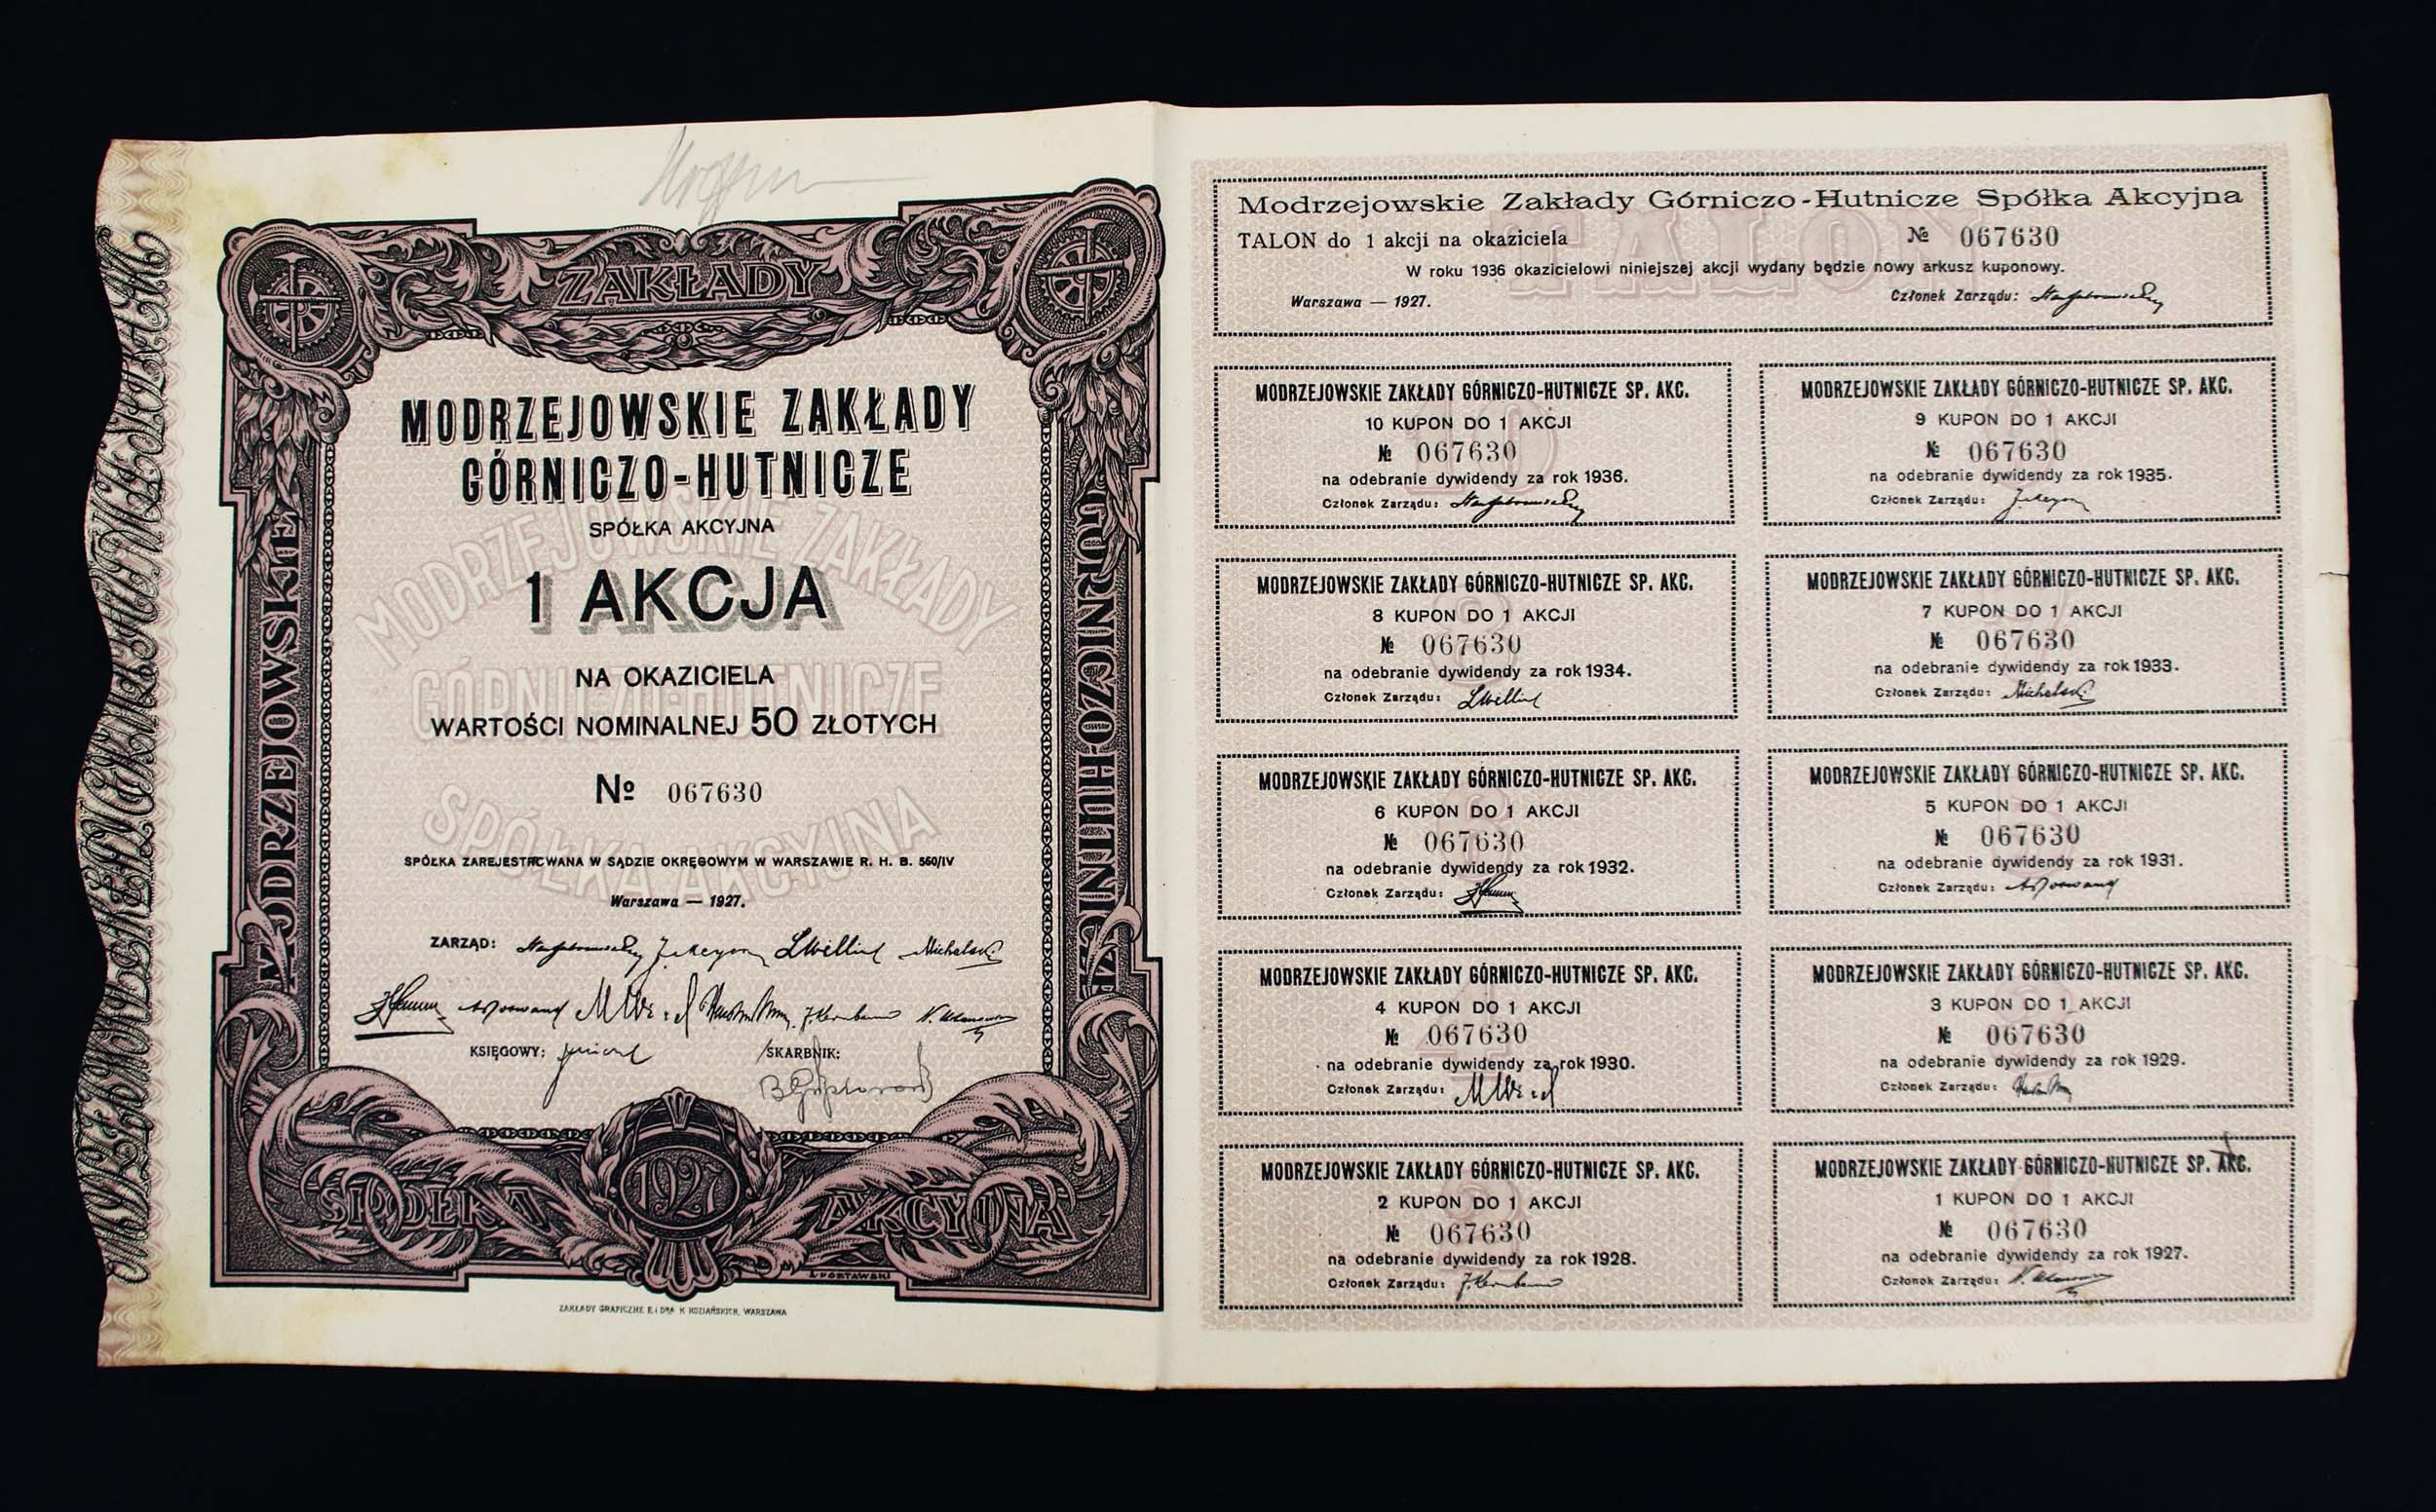 ZAKŁADY
MODRZEJOWSKIE
GÓRNICZO-HUTNICZE
MODRZEJOWSKIE ZAKŁADY
GÓRNICZO-HUTNICZE
SPÓŁKA AKCYJNA
1 AKCJA
NA OKAZICIELA
WARTOŚCI NOMINALNEJ 50 ZŁOTYCH
№ 067630
MODRZEJOWSKIE ZAKŁADY
GÓRNICZO-HUTNICZE
SPÓŁKA AKCYJNA
SPÓŁKA ZAREJESTROWANA W SĄDZIE OKRĘGOWYM W WARSZAWIE R. H. B. 560/IV
Warszawa — 1927.
ZARZĄD:
Michalski
KSIĘGOWY:
SKARBNIK:
1927
SPÓŁKA AKCYJNA
ZAKŁADY GRAFICZNE B. i DRA K KOZIAŃSKICH, WARSZAWA
Modrzejowskie Zakłady Górniczo-Hutnicze Spółka Akcyjna
TALON
TALON do 1 akcji na okaziciela № 067630
W roku 1936 okazicielowi niniejszej akcji wydany będzie nowy arkusz kuponowy.
Warszawa — 1927. Członek Zarządu:
MODRZEJOWSKIE ZAKŁADY GÓRNICZO-HUTNICZE SP. AKC.
10 KUPON DO 1 AKCJI
№ 067630
na odebranie dywidendy za rok 1936.
Członek Zarządu:
MODRZEJOWSKIE ZAKŁADY GÓRNICZO-HUTNICZE SP. AKC.
9 KUPON DO 1 AKCJI
№ 067630
na odebranie dywidendy za rok 1935.
Członek Zarządu:
MODRZEJOWSKIE ZAKŁADY GÓRNICZO-HUTNICZE SP. AKC.
8 KUPON DO 1 AKCJI
№ 067630
na odebranie dywidendy za rok 1934.
Członek Zarządu:
MODRZEJOWSKIE ZAKŁADY GÓRNICZO-HUTNICZE SP. AKC.
7 KUPON DO 1 AKCJI
№ 067630
na odebranie dywidendy za rok 1933.
Członek Zarządu: Michalski
MODRZEJOWSKIE ZAKŁADY GÓRNICZO-HUTNICZE SP. AKC.
6 KUPON DO 1 AKCJI
№ 067630
na odebranie dywidendy za rok 1932.
Członek Zarządu:
MODRZEJOWSKIE ZAKŁADY GÓRNICZO-HUTNICZE SP. AKC.
5 KUPON DO 1 AKCJI
№ 067630
na odebranie dywidendy za rok 1931.
Członek Zarządu:
MODRZEJOWSKIE ZAKŁADY GÓRNICZO-HUTNICZE SP. AKC.
4 KUPON DO 1 AKCJI
№ 067630
na odebranie dywidendy za rok 1930.
Członek Zarządu:
MODRZEJOWSKIE ZAKŁADY GÓRNICZO-HUTNICZE SP. AKC.
3 KUPON DO 1 AKCJI
№ 067630
na odebranie dywidendy za rok 1929.
Członek Zarządu:
MODRZEJOWSKIE ZAKŁADY GÓRNICZO-HUTNICZE SP. AKC.
2 KUPON DO 1 AKCJI
№ 067630
na odebranie dywidendy za rok 1928.
Członek Zarządu:
MODRZEJOWSKIE ZAKŁADY GÓRNICZO-HUTNICZE SP. AKC.
1 KUPON DO 1 AKCJI
№ 067630
na odebranie dywidendy za rok 1927.
Członek Zarządu: